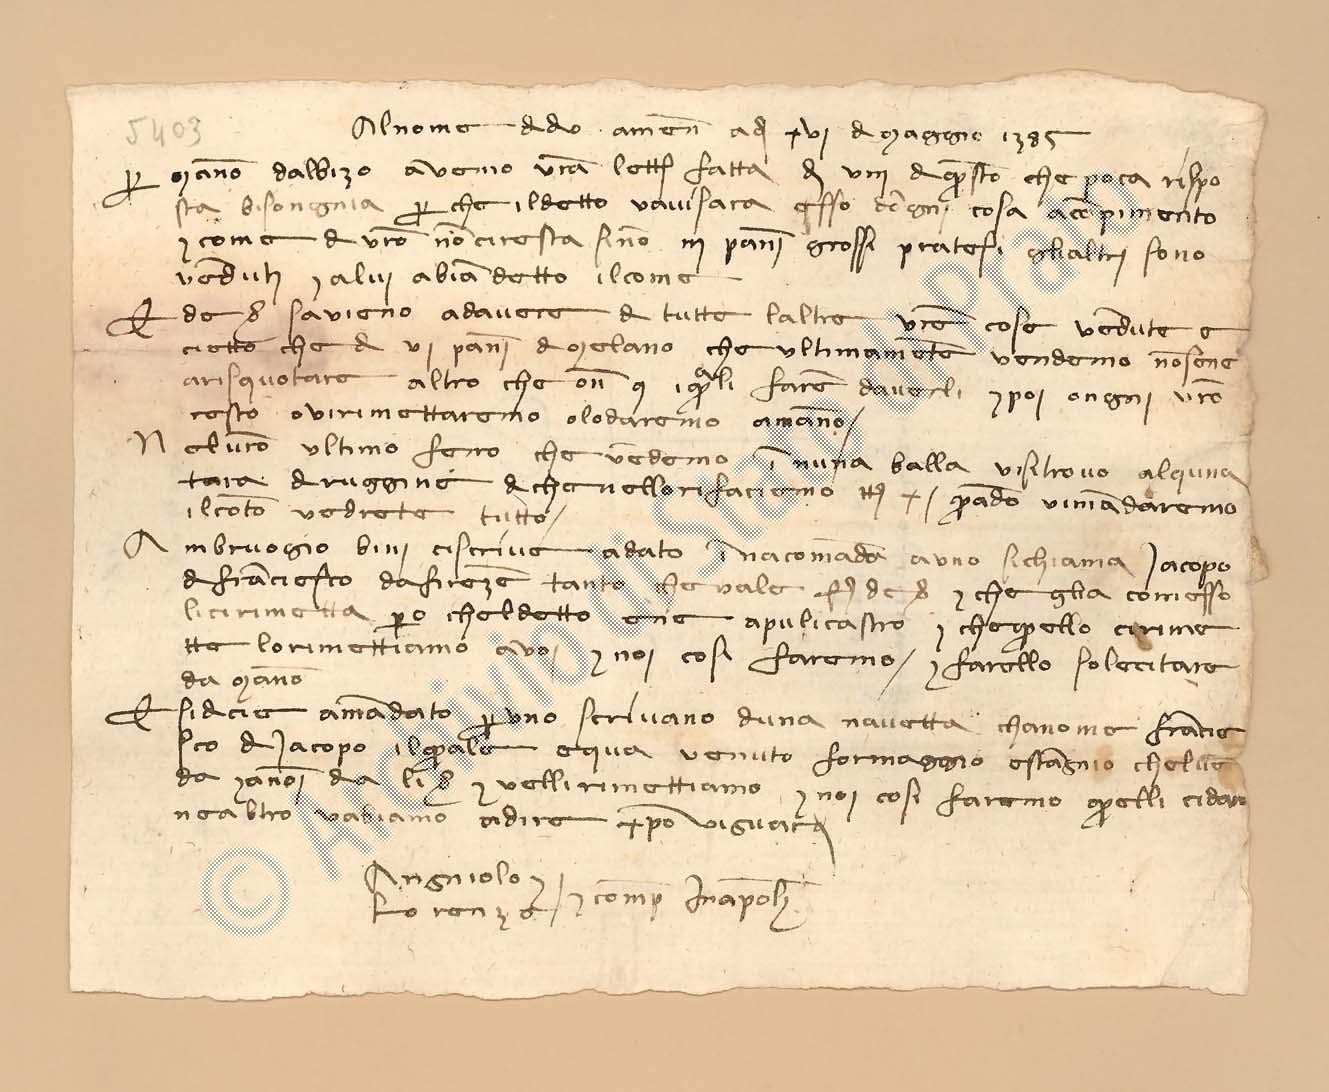 5403
Al nome d dio amen adi xvi d maggio 1385
P manno dalbizo avemo vra lettera fatta di viii d qsto che poca rispo
sta bisongnia p che il detto vavisara esso dongni cosa a conpimento
e come d vro non ci resta sino iii panni grossi pratesi gli altri sono
venduti e a lui abian detto il come
E de savieno ad avere d tutte laltre vre cose vendute e
cietto che d vi panni d melano che ultimamente vendemo non sene
a risquotare altro che on i quali faren daverli e poi ongni vro
resto o vi rimettaremo o lo daremo a manno /
Nel vro ultimo ferro che vendemo in nuna balla vi si trovo alquna
tara d ruggine d che nello rifaciemo xi quando vi mandaremo
il conto vedrete tutto /
Ambruogio bini ci scrive a dato in acomanda a uno si chiama Jacopo
d franciesco da firenze tanto che vale e che gli a comesso
li ci rimetta pero chel detto ene a pulicastro e che quello ci rime
tte lo rimettiamo a voi e noi cosi faremo / e farello solecitare
da manno
E si dicie a mandato p uno scrivano duna navetta cha nome francie
sco d Jacopo il quale e qua venuto formaggio e stangnio che lve
da e velli rimettiamo e noi cosi faremo quelli ci dara
ne altro vabiamo a dire xpo vi guardi
Angniolo e
Lorenzo / e comp In napoli
© Archivio di Stato di Prato